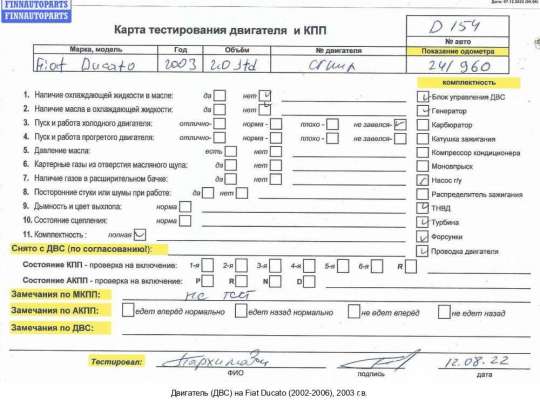 FINNAUTOPARTS
FINNAUTOPARTS
Карта тестирования двигателя и КПП
D 154
№ авто
Марка, модель Год Объём № двигателя Показание одометра
Fiat Ducato 2003 2.0 Jtd 241960
комплектность
1. Наличие охлаждающей жидкости в масле: да нет
Блок управления ДВС
2. Наличие масла в охлаждающей жидкости: да нет
Генератор
3. Пуск и работа холодного двигателя: отлично- норма - плохо - не завелся-
Карбюратор
4. Пуск и работа прогретого двигателя: отлично- норма - плохо - не завелся-
Катушка зажигания
5. Давление масла: есть нет
Компрессор кондиционера
6. Картерные газы из отверстия масляного щупа: да нет
Моновпрыск
7. Наличие газов в расширительном бачке: да нет
Насос г/у
8. Посторонние стуки или шумы при работе: да нет
Распределитель зажигания
9. Дымность и цвет выхлопа: норма
ТНВД
10. Состояние сцепления: норма
Турбина
11. Комплектность : полная
Форсунки
Снято с ДВС (по согласованию!):
Проводка двигателя
Состояние КПП - проверка на включение: 1-я 2-я 3-я 4-я 5-я 6-я R
Состояние АКПП - проверка на включение: P R N D
Замечания по МКПП: не тест
Замечания по АКПП: едет вперёд нормально едет назад нормально не едет вперёд не едет назад
Замечания по ДВС:
Тестировал: 12.08.22
ФИО подпись дата
Двигатель (ДВС) на Fiat Ducato (2002-2006), 2003 г.в.